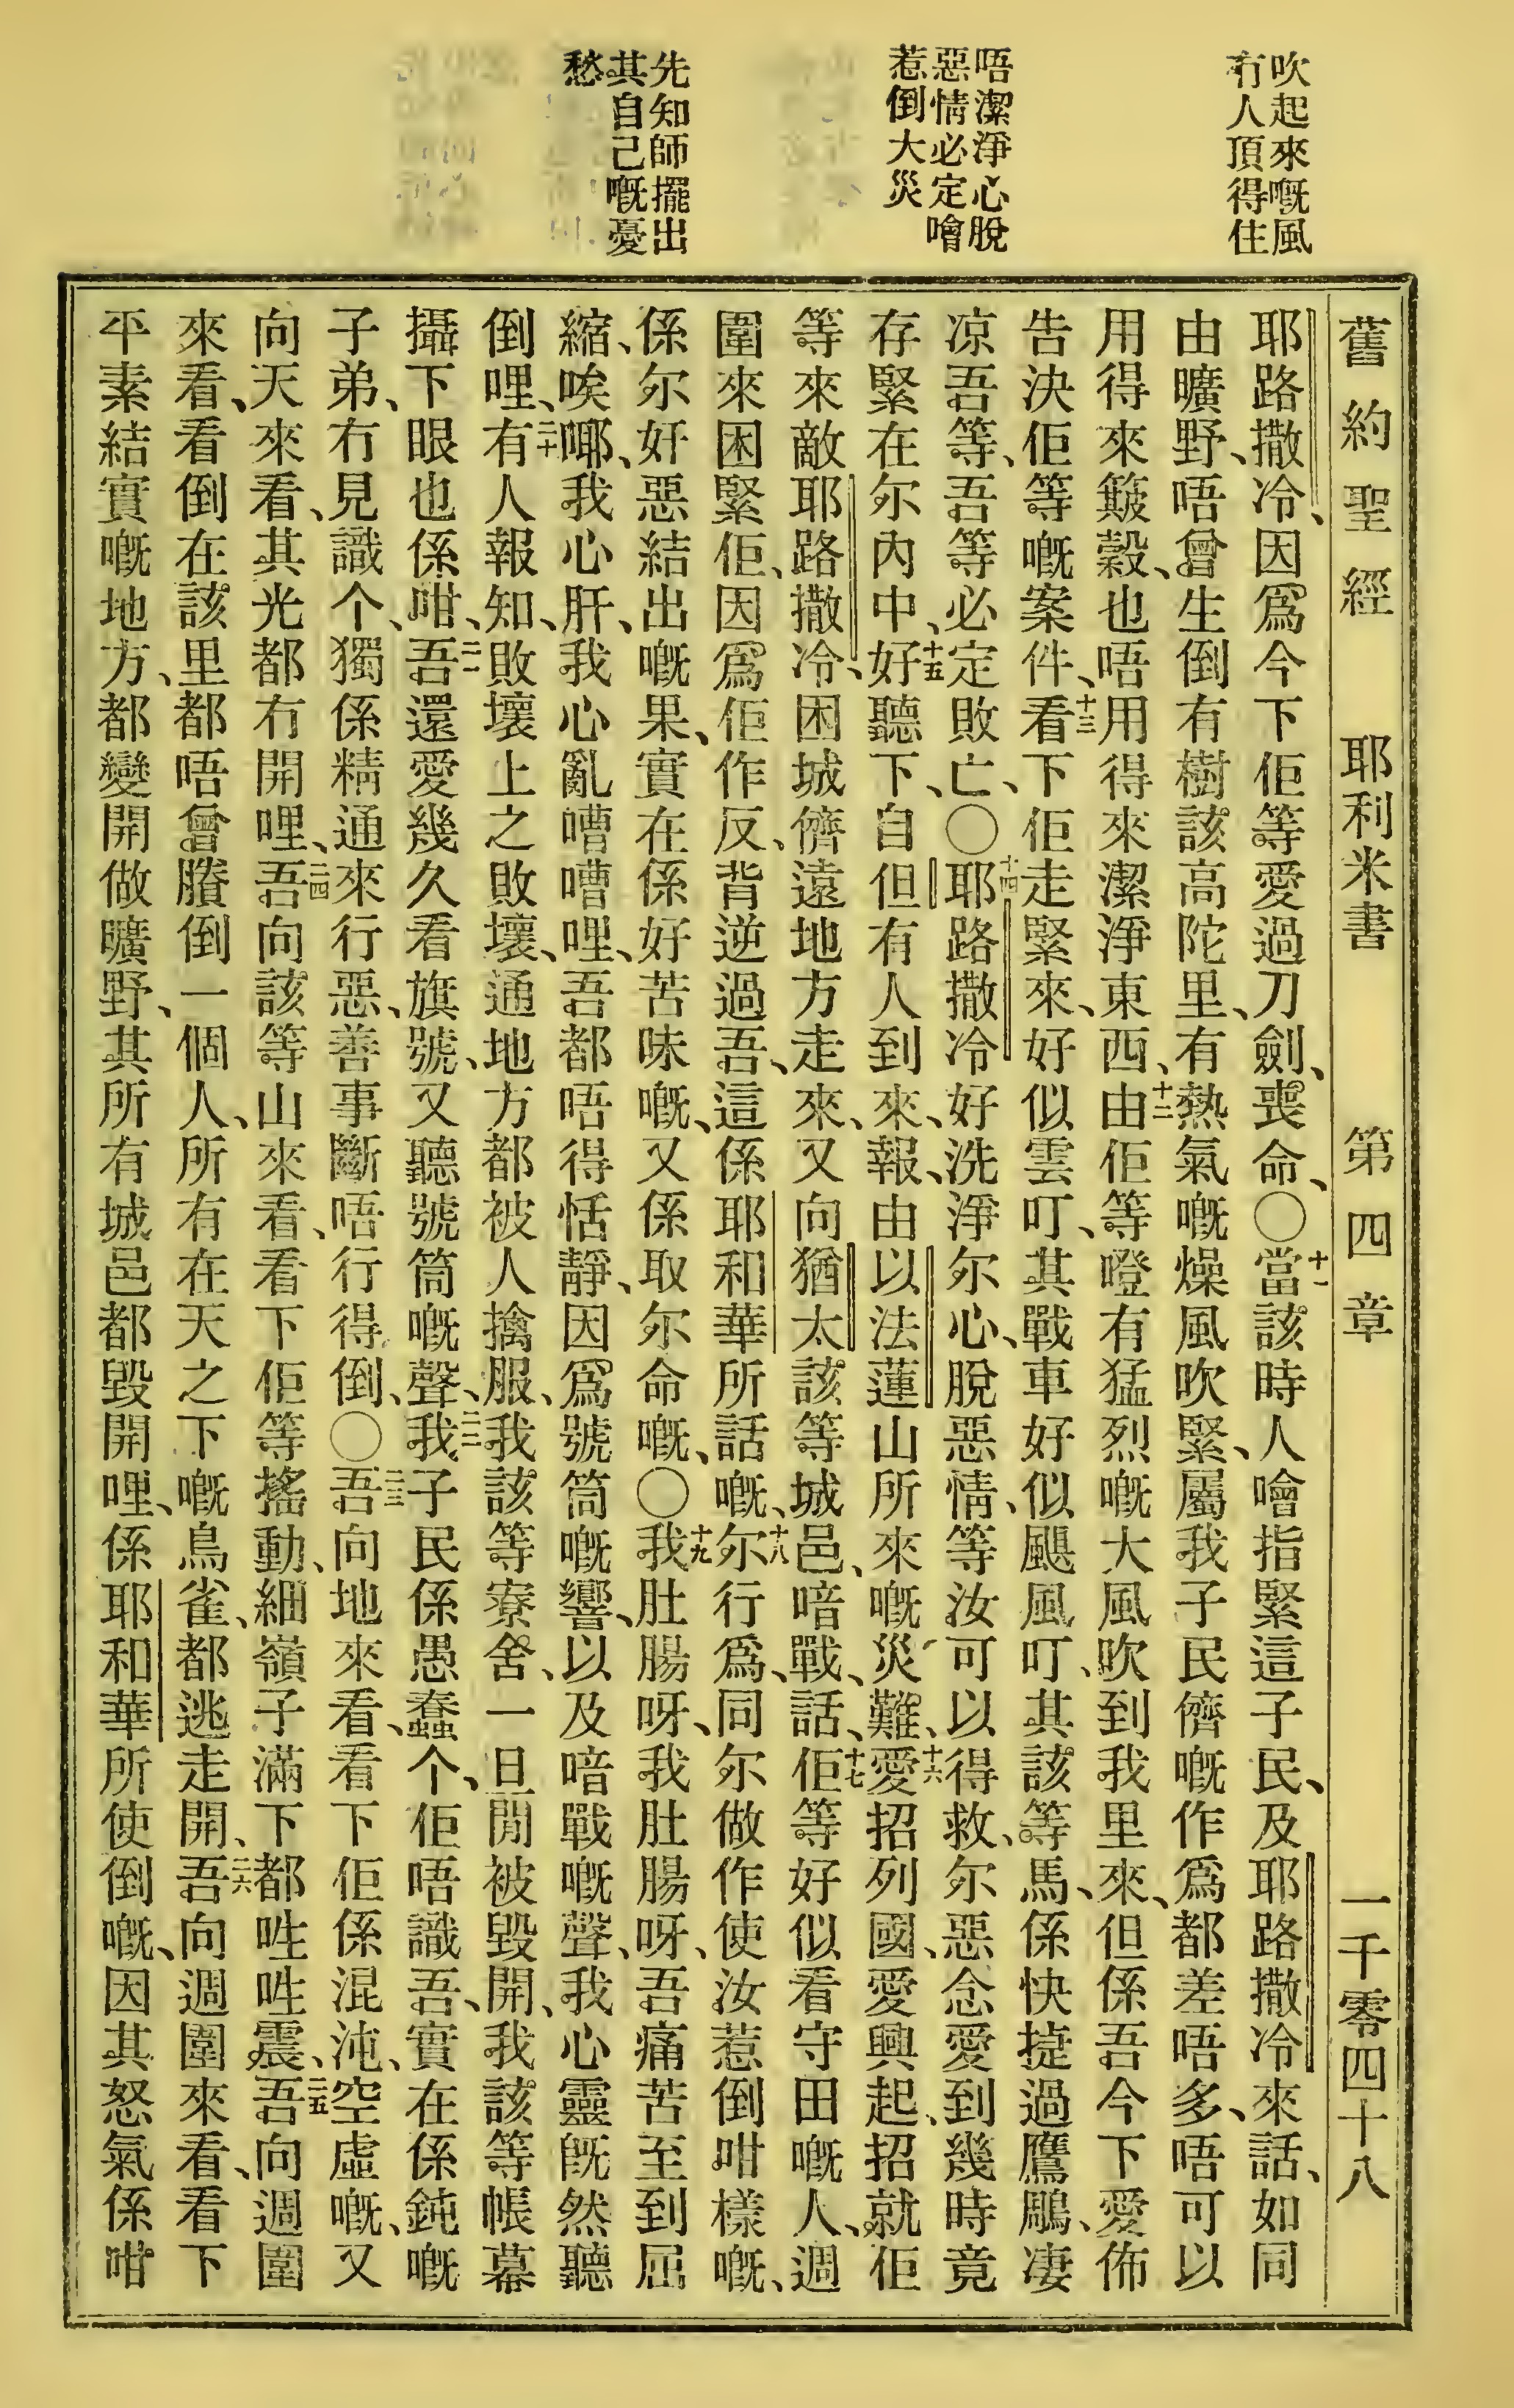 吹起來嘅風
冇人頂得住
唔潔淨心脫
惡情必定噲
惹倒大災
先知師擺出
其自己嘅憂
愁
舊約聖經 耶利米書 第四章 一千零四十八
耶路撒冷、因爲今下佢等愛過刀劍、喪命、〇十一當該時人噲指緊這子民、及耶路撒冷來話、如同
由曠野、唔曾生倒有樹該高陀里、有熱氣嘅燥風吹緊、屬我子民儕嘅作爲都差唔多、唔可以
用得來簸穀、也唔用得來潔淨東西、十二由佢等噔有猛烈嘅大風吹到我里來、但係吾今下愛佈
告決佢等嘅案件、十三看下佢走緊來、好似雲叮、其戰車好似颶風叮、其該等馬、係快捷過鷹鵰、凄
凉吾等、吾等必定敗亡、〇十四耶路撒冷好洗淨尔心、脫惡情、等汝可以得救、尔惡念愛到幾時竟
存緊在尔內中、十五好聽下、自但有人到來、報、由以法蓮山所來嘅災難、十六愛招列國、愛興起、招就佢
等來敵耶路撒冷、困城儕遠地方走來、又向猶太該等城邑、喑戰、話、十七佢等好似看守田嘅人、週
圍來困緊佢、因爲佢作反、背逆過吾、這係耶和華所話嘅、十八尔行爲、同尔做作使汝惹倒咁樣嘅、
係尔奸惡結出嘅果、實在係好苦味嘅、又係取尔命嘅、〇十九我肚腸呀、我肚腸呀、吾痛苦至到屈
縮、唉㖿、我心肝、我心亂嘈嘈哩、吾都唔得恬靜、因爲號筒嘅響、以及喑戰嘅聲、我心靈旣然聽
倒哩、二十有人報知、敗壞上之敗壞、通地方都被人擒服、我該等寮舍、一旦間被毀開、我該等帳幕
攝下眼也係咁、二一吾還愛幾久看旗號、又聽號筒嘅聲、二二我子民係愚蠢个、佢唔識吾、實在係鈍嘅
子弟、冇見識个、獨係精通來行惡、善事斷唔行得倒、〇二三吾向地來看、看下佢係混沌、空虛嘅、又
向天來看、其光都冇開哩、二四吾向該等山來看、看下佢等搖動、細嶺子滿下都𠱷𠱷震、二五吾向週圍
來看、看倒在該里都唔曾賸倒一個人、所有在天之下嘅鳥雀、都逃走開、二六吾向週圍來看、看下
平素結實嘅地方、都變開做曠野、其所有城邑都毀開哩、係耶和華所使倒嘅、因其怒氣係咁